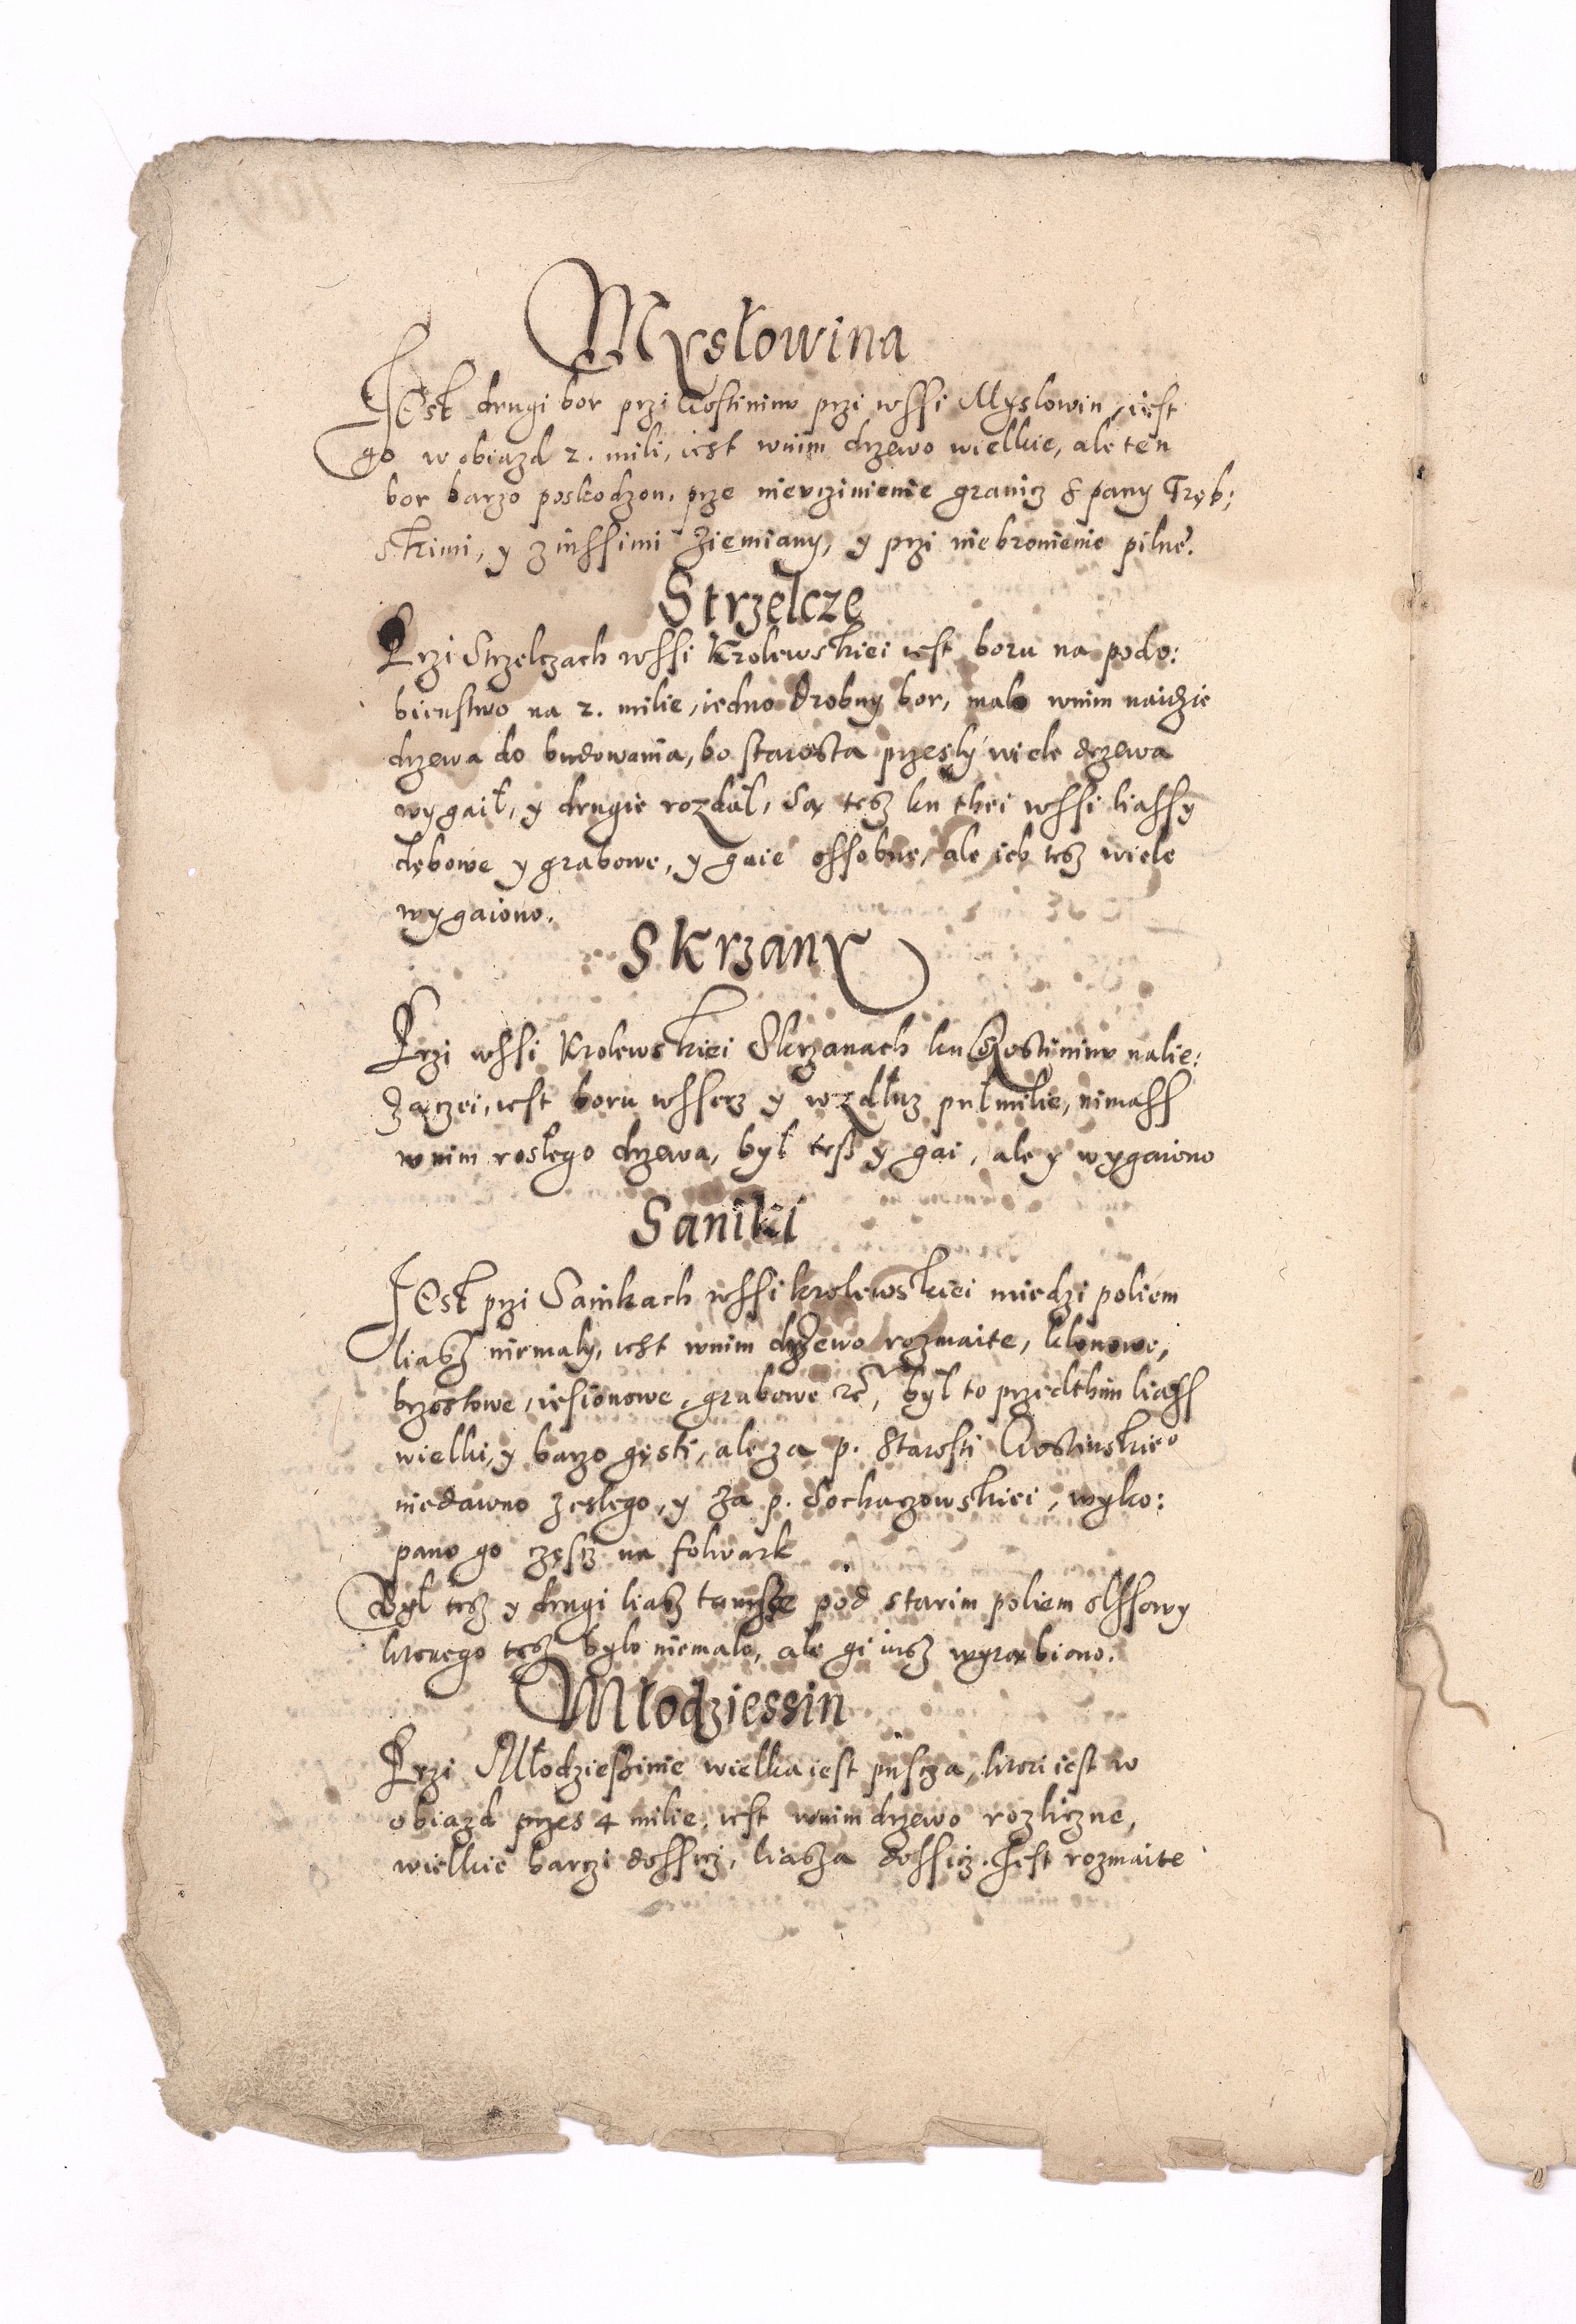 Mysłowina
Jest drugi bor przi Gostininu przi wssi Myslowin, iest
go w obiazd 2. mili, iest wnim drzewo wielkie, ale ten
bor barzo poskodzon, prze nievczinienie granicz s pany Tręb:
skimi, y z inssimi ziemiany, y przi niebronienie pilne.
Strzelcze
Przi Strzelczach wssi Krolewskiei iest boru na podo:
bienstwo na 2. milie, iedno drobny bor, malo wnim naidzie
drzewa do budowania, bo starosta przesly wiele drzewa
wygaił, y drugie rozdał, Są tesz ku thei wssi liassy
dębowe y grabowe, y gaie ossobne, ale ich tesz wiele
wygaiono.
Skrzany
Przi wssi Krolewskiei Skrzanach ku Gostininu nalie:
żączei, iest boru wsserz y wzdłuz pułmilie, nimass
wnim rosłego drzewa, był tesz y gai, ale y wygaiono
Saniki
Jest przi Sanikach wssi krolewskiei miedzi poliem
liasz niemały, iest wnim drzewo rozmaite, klonowe,
brzostowe, iesionowe, grabowe etc, był to przedthim liass
wielki, y barzo gęsti, ale za p. Starosti Gostinskieo
niedawno zeslego, y za p. Sochaczowskiei, wyko:
pano go część na folwark
Był tesz y drugi liasz tamsze pod starim poliem olssowy
ktorego tesz bylo niemalo, ale gi iusz wyrąbiono.
Młodziessin
Przi Młodzieszinie wielka iest puscza, ktori iest w
obiazd przes 4 milie, iest wnim drzewo rozliczne,
wielkie barczi dossicz, liasza dossicz. Jest rozmaite